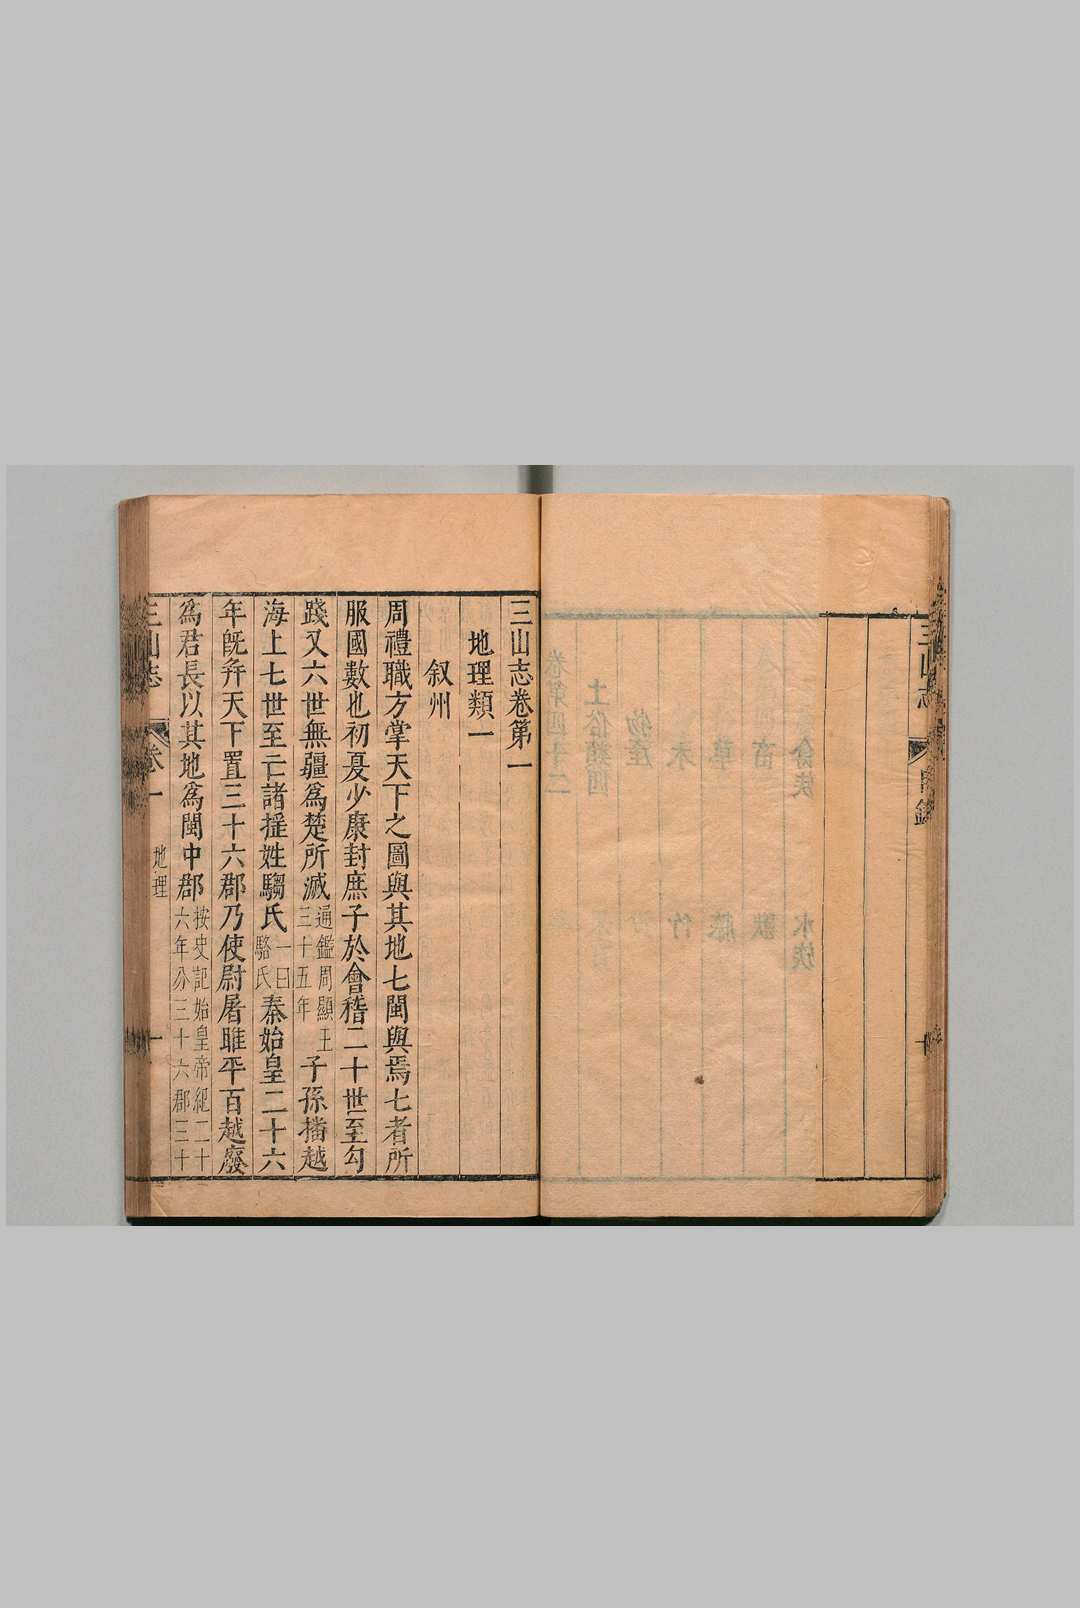 三山志 目錄
三山志卷第一
地理類一
叙州
周禮職方掌天下之圖與其地七閩與焉七者所
服國數也初夏少康封庶子於會稽二十世至勾
踐又六世無疆爲楚所滅通鑑周顯王三十五年子孫播越
海上七世至亡諸揺姓騶氏一曰駱氏秦始皇二十六
年旣并天下置三十六郡乃使尉屠睢平百越廢
爲君長以其地爲閩中郡按史記始皇帝紀二十六年分三十六郡三十
三山志 卷一 地理 一